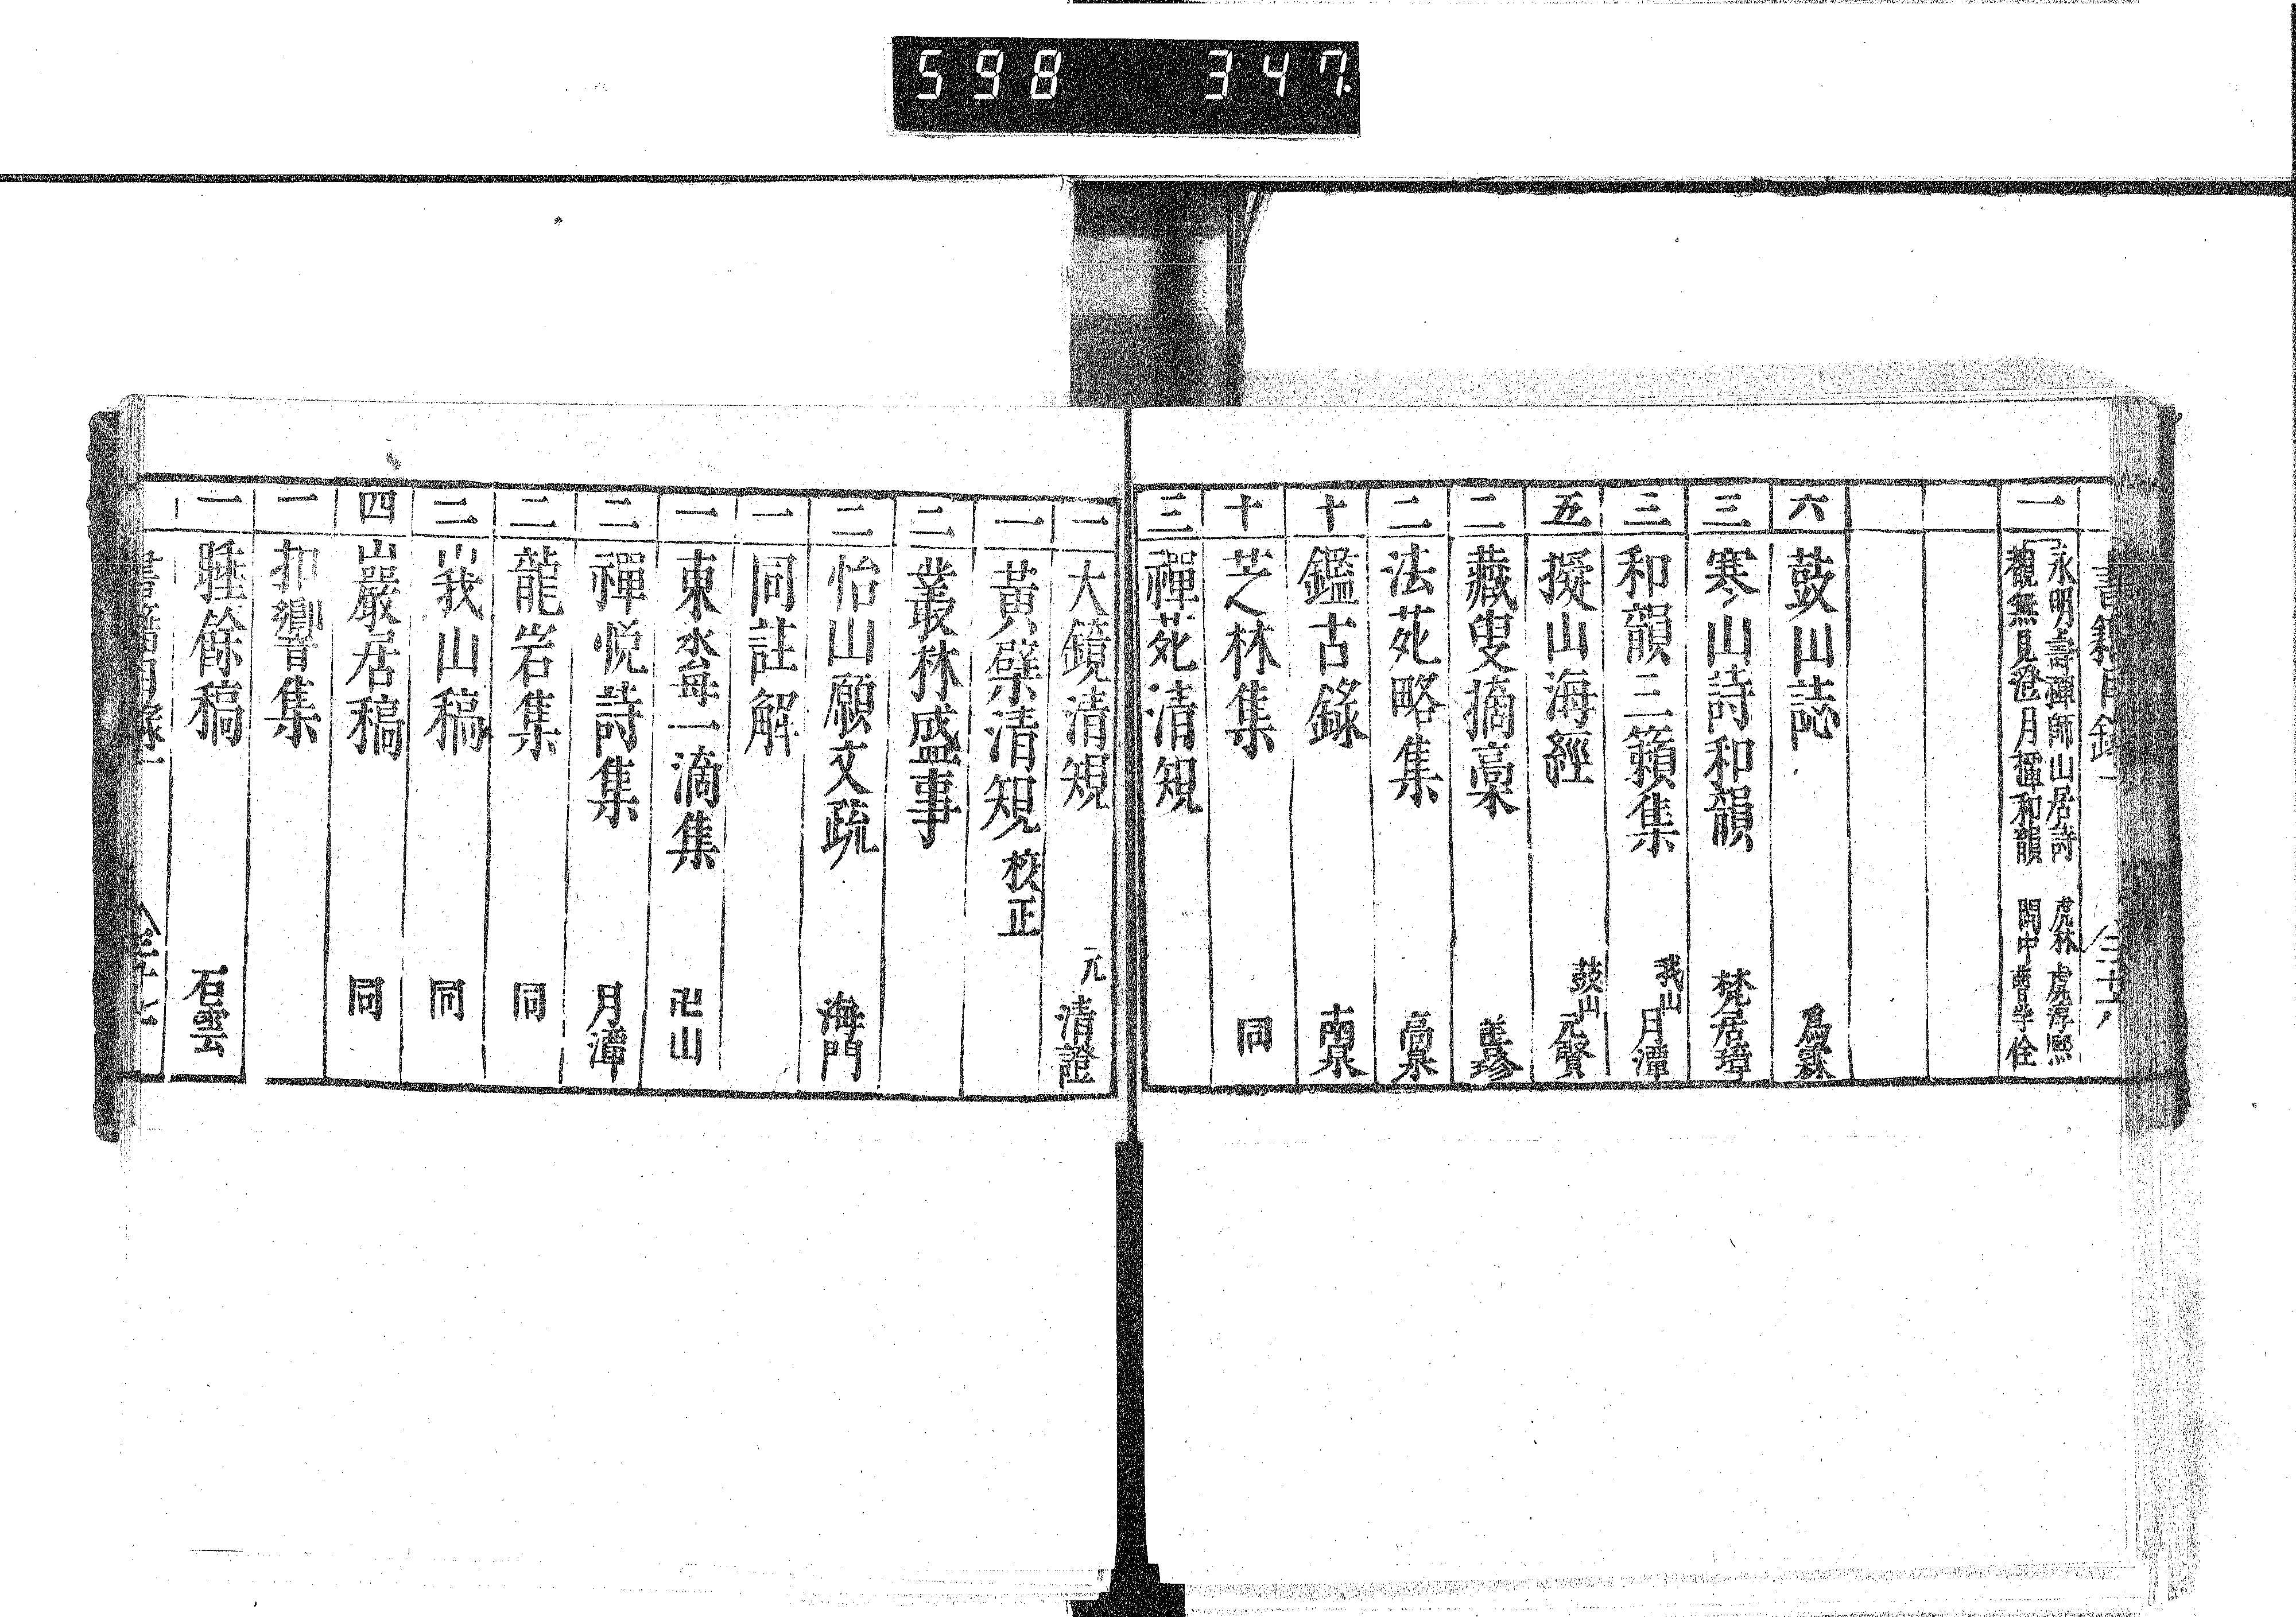 598 347
書籍目錄一
一 永明壽禪師山居詩 虎林
觀無見澄月禪和韻
六 鼓山誌 爲霖
三 寒山詩和韻 梵居璋
三 和韻三籟集 我山月潭
五 擬山海經 鼓山元賢
二 藏叟摘稾 善珍
二 法苑略集 高泉
十 鑑古錄 南泉
十 芝林集 同
三 禪苑清規
一 大鏡清規 元 清證
一 黃檗清規 校正
二 叢林盛事
二 怡山願文疏 海門
一 同註解
一 東 一滴集 卍山
二 禪悅詩集 月潭
二 龍岩集 同
二 峩山稿 同
四 巖居稿 同
一 卻響集
一 睡餘稿 石雲
書籍目錄一